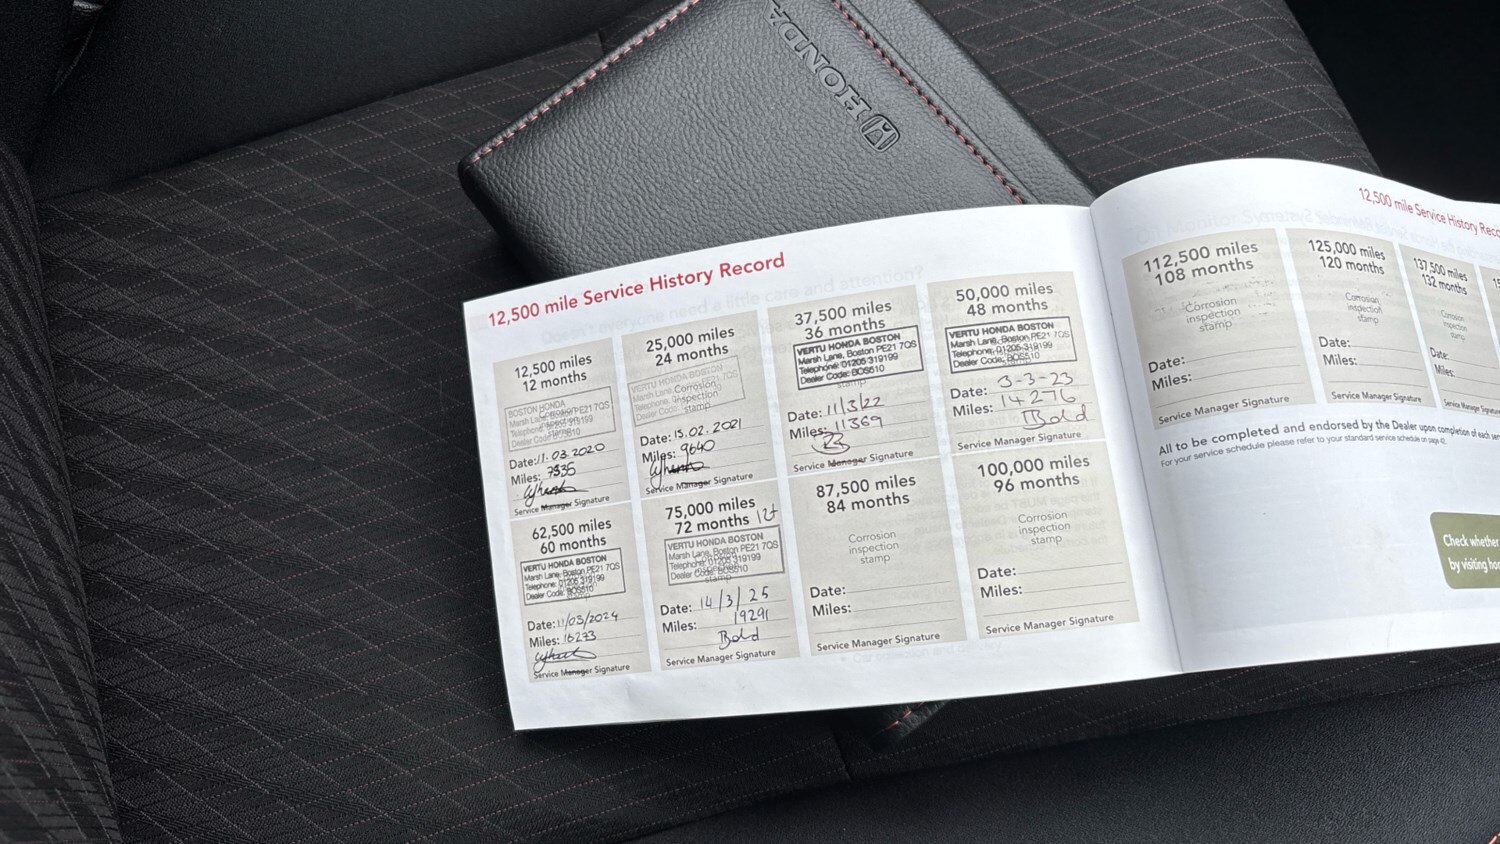 HONDA
12,500 mile Service History Record
12,500 miles
12 months
BOSTON HONDA
Marsh Lane, Boston PE21 7QS
Telephone: 01205 319199
Dealer Code: BOS510
Date: 11.03.2020
Miles: 7535
Service Manager Signature
25,000 miles
24 months
VERTU HONDA BOSTON
Marsh Lane, Boston PE21 7QS
Telephone: 01205 319199
Dealer Code: BOS510
Corrosion
inspection
stamp
Date: 15.02.2021
Miles: 9640
Service Manager Signature
37,500 miles
36 months
VERTU HONDA BOSTON
Marsh Lane, Boston PE21 7QS
Telephone: 01205 319199
Dealer Code: BOS510
stamp
Date: 11/3/22
Miles: 11369
Service Manager Signature
50,000 miles
48 months
VERTU HONDA BOSTON
Marsh Lane, Boston PE21 7QS
Telephone: 01205 319199
Dealer Code: BOS510
Date: 3-3-23
Miles: 14276
Service Manager Signature
62,500 miles
60 months
VERTU HONDA BOSTON
Marsh Lane, Boston PE21 7QS
Telephone: 01205 319199
Dealer Code: BOS510
Date: 11/03/2024
Miles: 16273
Service Manager Signature
75,000 miles
72 months
VERTU HONDA BOSTON
Marsh Lane, Boston PE21 7QS
Telephone: 01205 319199
Dealer Code: BOS510
stamp
Date: 14/3/25
Miles: 19291
Service Manager Signature
87,500 miles
84 months
Corrosion
inspection
stamp
Date:
Miles:
Service Manager Signature
100,000 miles
96 months
Corrosion
inspection
stamp
Date:
Miles:
Service Manager Signature
12,500 mile Service History Reco
112,500 miles
108 months
Corrosion
inspection
stamp
Date:
Miles:
Service Manager Signature
125,000 miles
120 months
Corrosion
inspection
stamp
Date:
Miles:
Service Manager Signature
137,500 miles
132 months
Corrosion
inspection
stamp
Date:
Miles:
Service Manager Signature
All to be completed and endorsed by the Dealer upon completion of each
For your service schedule please refer to your standard service schedule on page
Check whether
by visiting